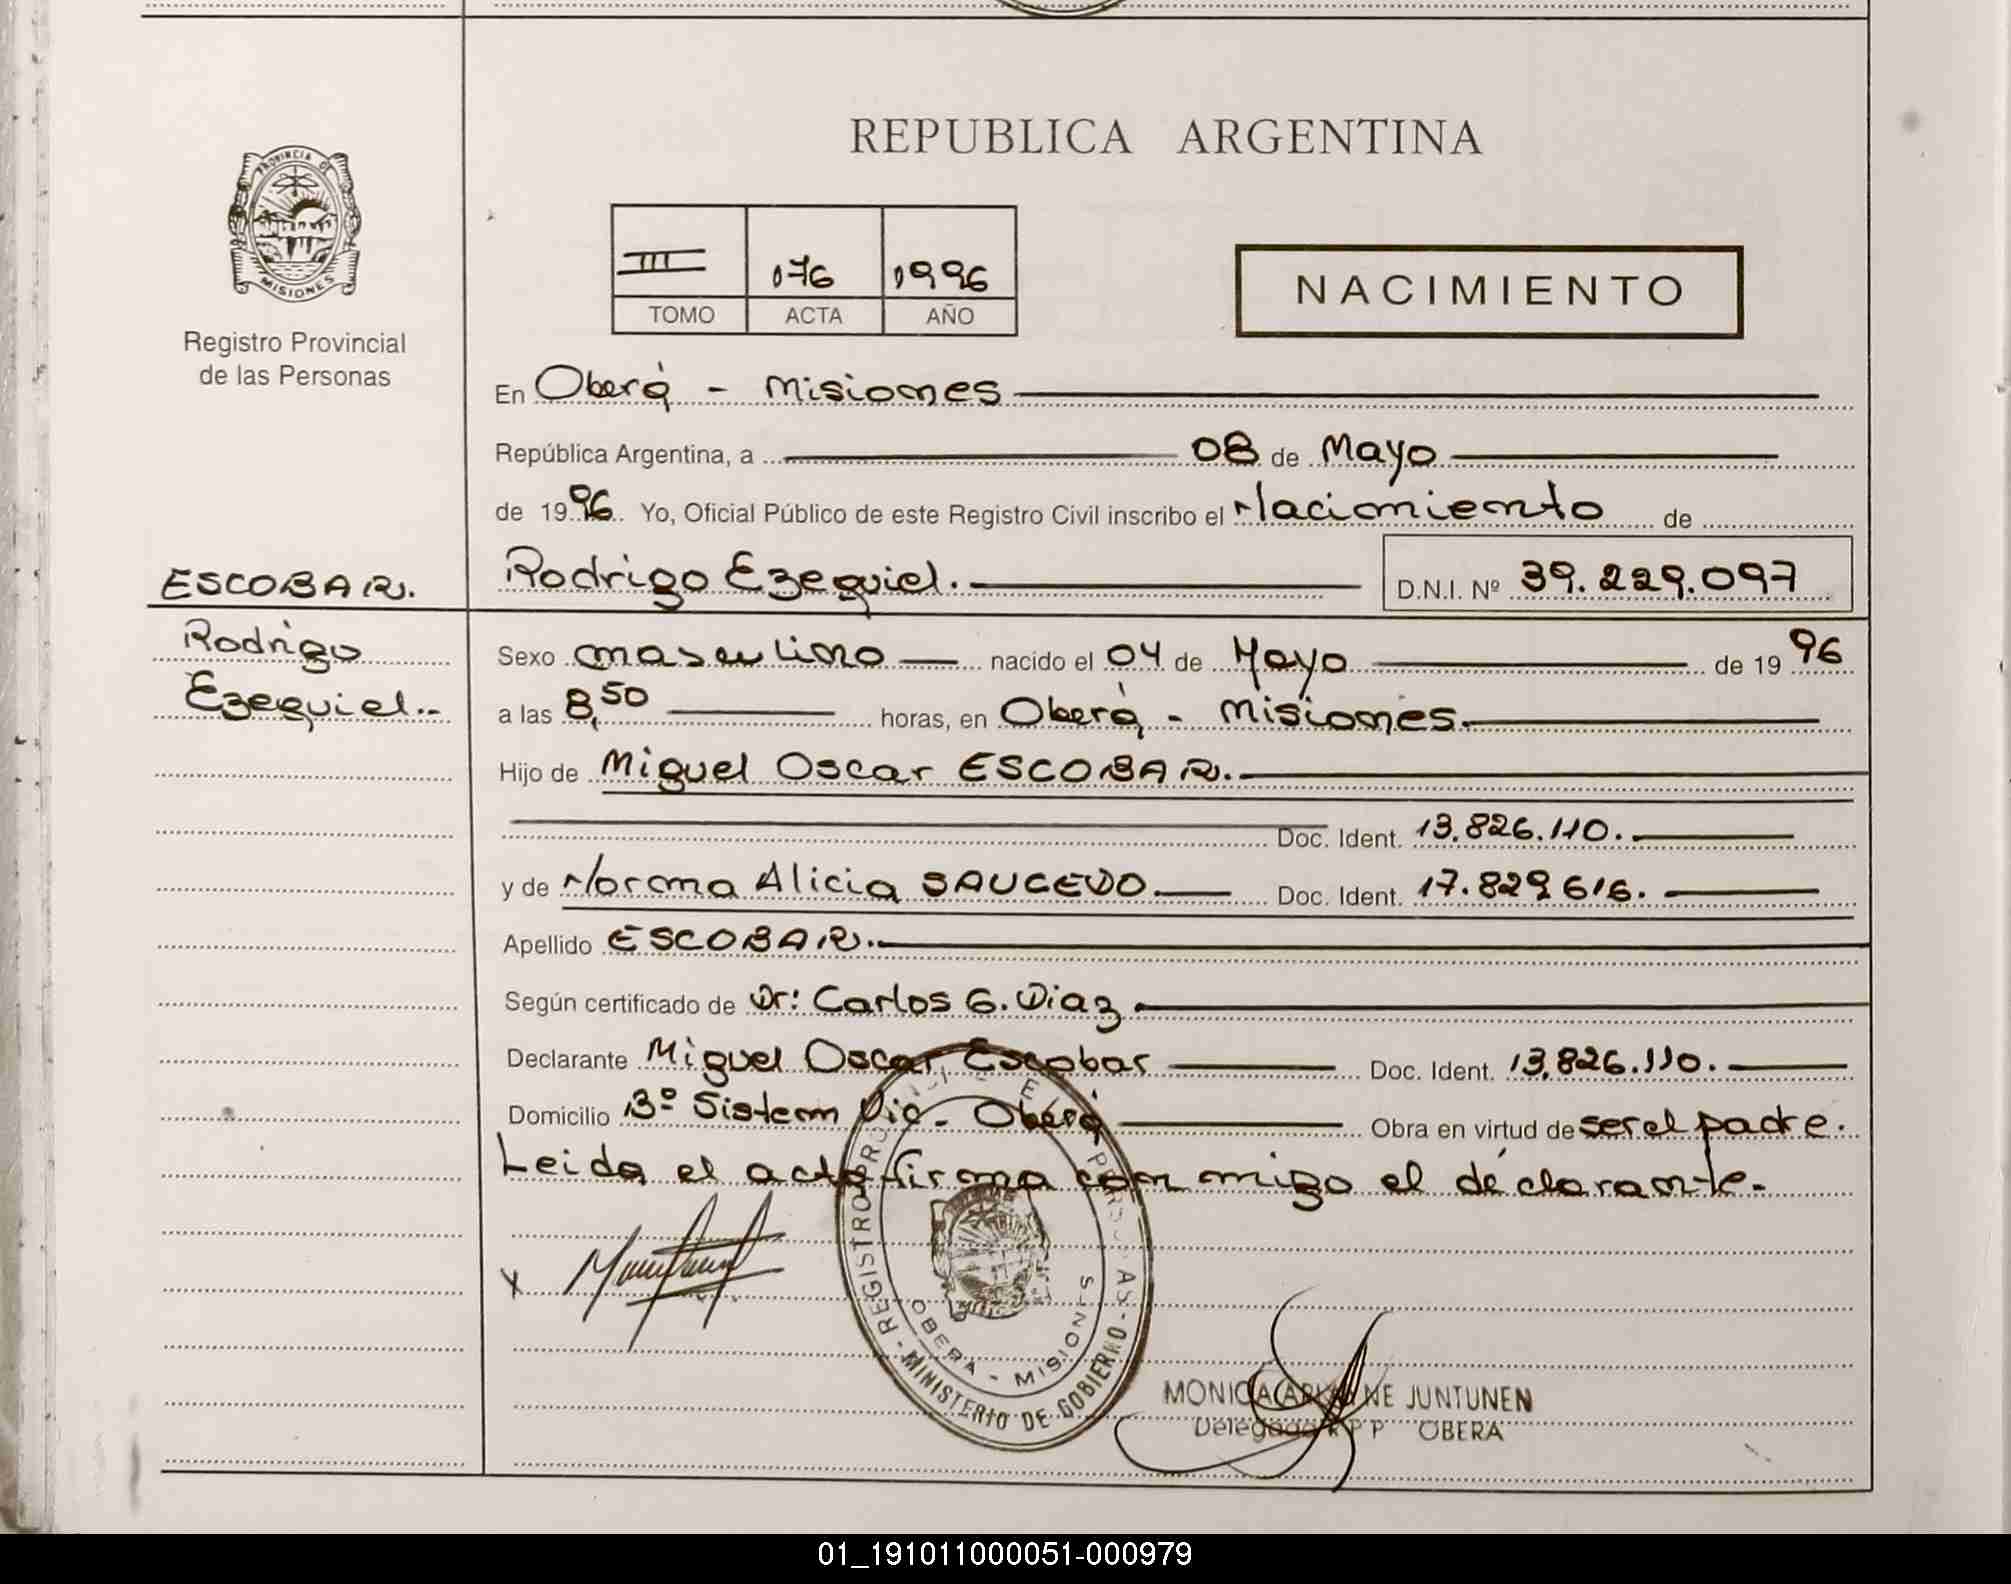 REPUBLICA ARGENTINA
PROVINCIA DE
MISIONES
Registro Provincial
de las Personas
III 076 1996
TOMO ACTA AÑO
NACIMIENTO
En Oberá - Misiones
República Argentina, a 08 de Mayo
de 1996 Yo, Oficial Público de este Registro Civil inscribo el Nacimiento de
ESCOBAR.
Rodrigo
Ezequiel.-
Rodrigo Ezequiel. D.N.I. Nº 39.229.097
Sexo masculino nacido el 04 de Mayo de 1996
a las 8,50 horas, en Oberá - Misiones.
Hijo de Miguel Oscar ESCOBAR.
Doc. Ident. 13.826.110.
y de Norma Alicia SAUCEDO. Doc. Ident. 17.829.616.
Apellido ESCOBAR.
Según certificado de Dr: Carlos G. Diaz
Declarante Miguel Oscar Escobar Doc. Ident. 13.826.110.
Domicilio B° Sistem Vic. - Oberá Obra en virtud de ser el padre.
Leida el acta firma con migo el déclarante.-
X
REGISTRO PROVINCIAL DE PERSONAS - MINISTERIO DE GOBIERNO -
OBERA - MISIONES
MONICA JUNTUNEN
Delegada R P P OBERA
01_191011000051-000979